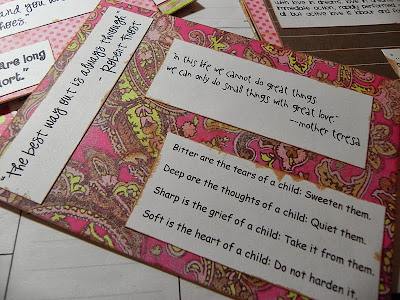 and you
are long
immediate action, rapidly performed
but active love is labour and
"The best way out is always through."
- Robert Frost
"in this life we cannot do great things.
we can only do small things with great love."
--mother teresa
Bitter are the tears of a child: Sweeten them.
Deep are the thoughts of a child: Quiet them.
Sharp is the grief of a child: Take it from them.
Soft is the heart of a child: Do not harden it.